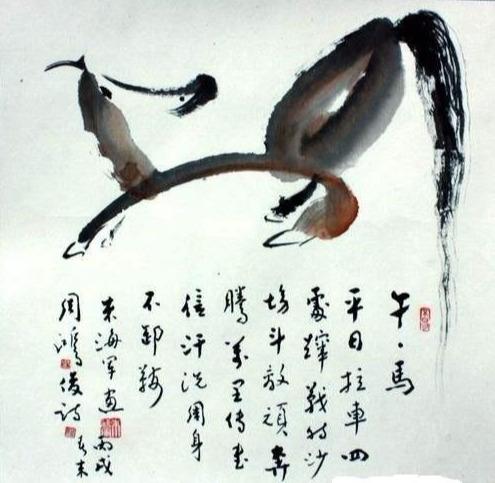 午·馬
平日拉車四
處戰时沙
場斗敵頑奔
騰萬里傳書
信汗洗周身
不卸鞍
海軍畫丙戌
周鴻俊詩春末